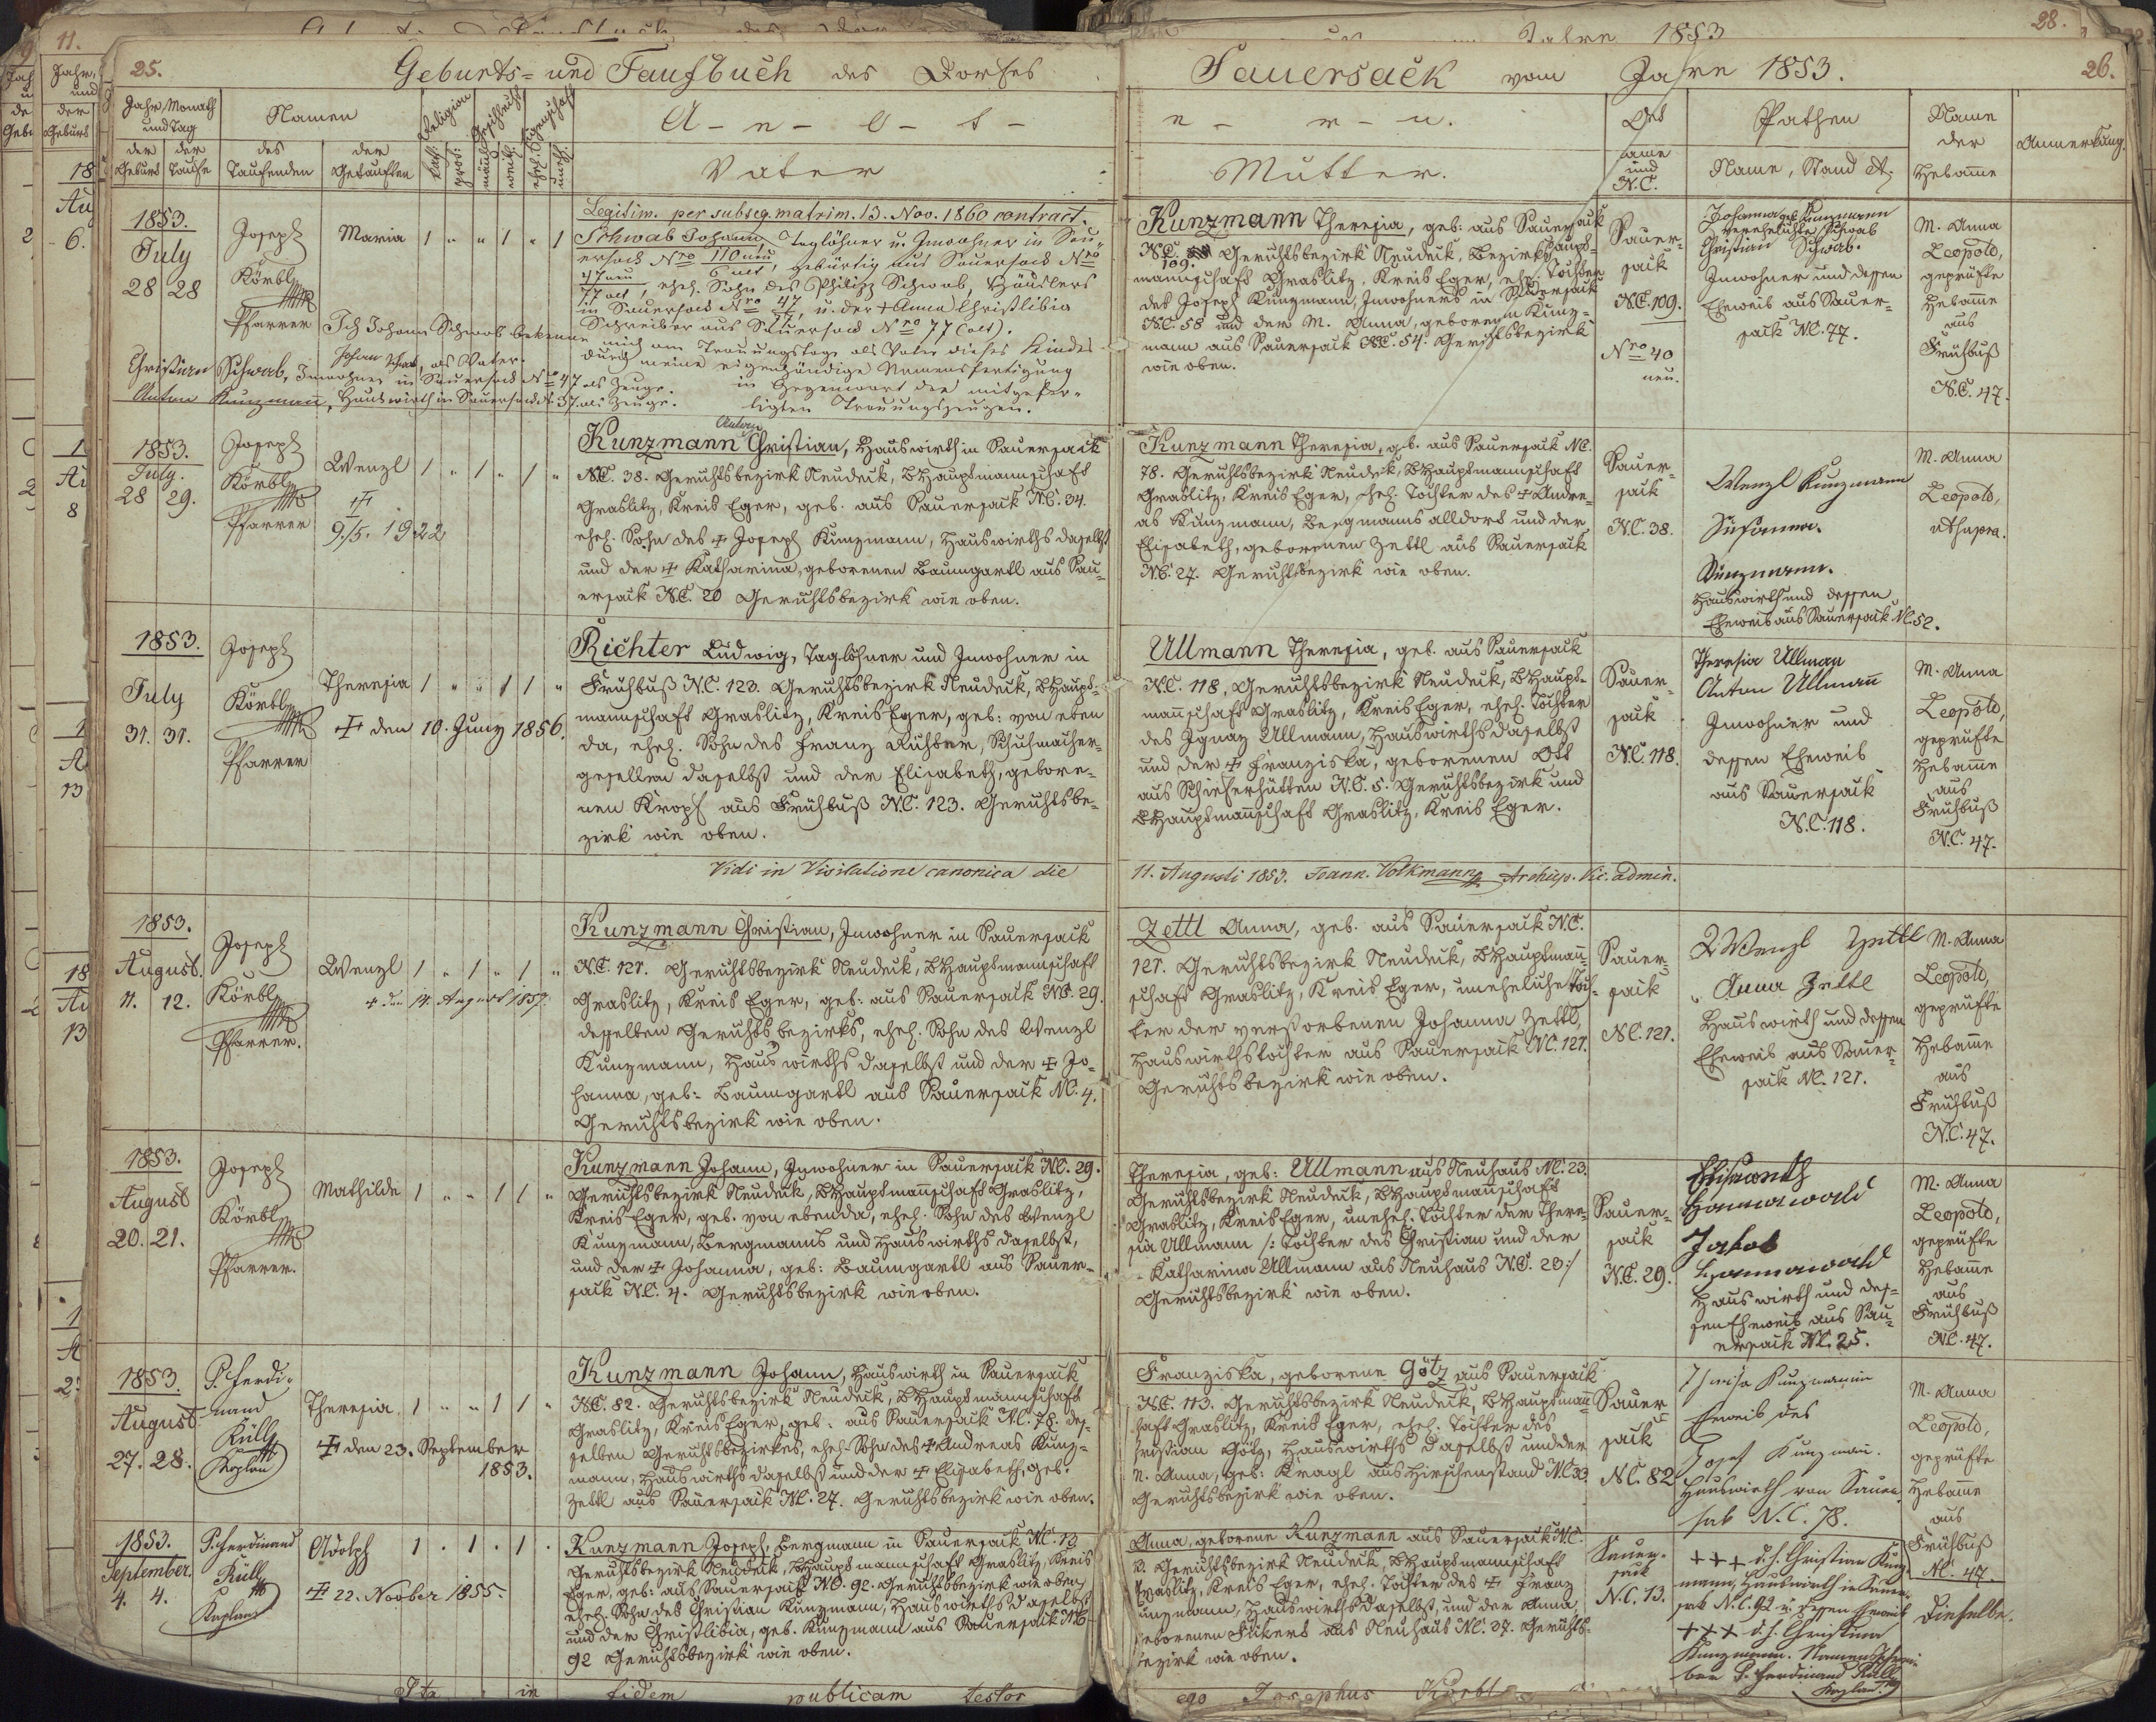 25.
Geburts- und Taufbuch des Dorfes
Sauersack vom Jahre 1853.
26.
28.
11.
Jahr, Monath
und Tag
der Geburt
der Taufe
Namen
des Taufenden
der Getauften
Religion
kath.
prot.
Geschlecht
männl.
weibl.
Eigenschaft
ehel.
unehl.
A - e - l - t -
Vater
e - r - n.
Mutter.
Ort
Name
und
N.C.
Pathen
Name, Stand etc.
Name
der
Hebamme
Anmerkung.
1853.
July
28 28
Joseph
Körbl
Pfarrer
Maria 1 " " 1 " 1
Legitim. per subseq. matrim. 13. Nov. 1860 contract.
Schwab Johann, Taglöhner u. Inwohner in Sau-
ersack Nro 110 neu, gebürtig aus Sauersack Nro
47 neu
77 alt, ehel. Sohn des Philipp Schwab, Häuslers
in Sauersack Nro 47/77, u. der + Anna Christlibia
Schreiber aus Sauersack Nro 77 (alt).
Ich Johann Schwab bekenne mich am Trauungstage als Vater dieses Kindes
durch meine eigenhändige Namensfertigung
in Gegenwart der mitgefer-
tigten Trauungszeugen.
Johan Schwab, als Vater.
Christian Schwab, Inwohner in Sauersack Nro 47 als Zeuge.
Anton Kunzmann, Hauswirth in Sauersack N. 37. als Zeuge.
Kunzmann Theresia, geb: aus Sauersack
N.C. 109. Gerichtsbezirk Neudeck, Bezirkshaupt-
mannschaft Graslitz, Kreis Eger, ehel. Tochter
des Joseph Kunzmann, Inwohners in Sauersack
N.C. 58 und der M. Anna, geborenen Kunz-
mann aus Sauersack N.C. 54. Gerichtsbezirk
wie oben.
Sauer-
sack
N.C. 109.
Nro 40
neu.
Johanna geb. Kunzmann
verehelichte Schwab
Christian Schwab.
Inwohner und dessen
Eheweib aus Sauer-
sack N.C. 77.
M. Anna
Leopold,
geprüfte
Hebamme
aus
Frühbuß
N.C. 47.
1853.
July.
28 29.
Joseph
Körbl
Pfarrer
Wenzl 1 " 1 " 1 "
+
9./5. 1922
Anton
Kunzmann Christian, Hauswirth in Sauersack
N.C. 38. Gerichtsbezirk Neudeck, BHauptmannschaft
Graslitz, Kreis Eger, geb. aus Sauersack N.C. 34.
ehel. Sohn des + Joseph Kunzmann, Hauswirths daselbst
und der + Katharina, geborenen Baumgartl aus Sau-
ersack N.C. 20 Gerichtsbezirk wie oben.
Kunzmann Theresia, geb. aus Sauersack N.C.
78. Gerichtsbezirk Neudeck, BHauptmannschaft
Graslitz, Kreis Eger, ehel. Tochter des + Andre-
as Kunzmann, Bergmanns alldort und der
Elisabeth, geborenen Zettl aus Sauersack
N.C. 27. Gerichtsbezirk wie oben.
Sauer-
sack
N.C. 38.
Wenzl Kunzmann
Susanna.
Kunzmann.
Hauswirth und dessen
Eheweib aus Sauersack N.C. 52.
M. Anna
Leopold,
ut supra.
1853.
July
31. 31.
Joseph
Körbl
Pfarrer
Theresia 1 " " 1 1 "
+ den 10. Juny 1856.
Richter Ludwig, Taglöhner und Inwohner in
Frühbuß N.C. 123. Gerichtsbezirk Neudeck, BHaupt-
mannschaft Graslitz, Kreis Eger, geb: von eben
da, ehel. Sohn des Franz Richter, Schuhmacher-
gesellen daselbst und der Elisabeth, gebore-
nen Kropf aus Frühbuß N.C. 123. Gerichtsbe-
zirk wie oben.
Ullmann Theresia, geb. aus Sauersack
N.C. 118, Gerichtsbezirk Neudeck, BHaupt-
mannschaft Graslitz, Kreis Eger, ehel. Tochter
des Ignaz Ullmann, Hauswirths daselbst
und der + Franziska, geborenen Ott
aus Schieferhütten N.C. 5. Gerichtsbezirk und
BHauptmannschaft Graslitz, Kreis Eger.
Sauer-
sack
N.C. 118.
Theresia Ullman
Anton Ullmann
Inwohner und
dessen Eheweib
aus Sauersack
N.C. 118.
M. Anna
Leopold,
geprüfte
Hebamme
aus
Frühbuß
N.C. 47.
Vidi in Visitatione canonica die 11. Augusti 1853. Joann. Volkmann Archiep. Vic. admin.
1853.
August.
11. 12.
Joseph
Körbl
Pfarrer.
Wenzl 1 " 1 " 1 "
+ den 14. August 1857.
Kunzmann Christian, Inwohner in Sauersack
N.C. 121. Gerichtsbezirk Neudeck, BHauptmannschaft
Graslitz, Kreis Eger, geb: aus Sauersack N.C. 29.
desselben Gerichtsbezirks, ehel. Sohn des Wenzl
Kunzmann, Hauswirths daselbst und der + Jo-
hanna, geb: Baumgartl aus Sauersack N.C. 4.
Gerichtsbezirk wie oben.
Zettl Anna, geb. aus Sauersack N.C.
121. Gerichtsbezirk Neudeck, BHauptmann-
schaft Graslitz, Kreis Eger, uneheliche Toch-
ter der verstorbenen Johanna Zettl,
Hauswirthstochter aus Sauersack N.C. 121.
Gerichtsbezirk wie oben.
Sauer-
sack
N.C. 121.
Wenzl Zettl
Anna Zettl
Hauswirth und dessen
Eheweib aus Sauer-
sack N.C. 121.
M. Anna
Leopold,
geprüfte
Hebamme
aus
Frühbuß
N.C. 47.
1853.
August
20. 21.
Joseph
Körbl
Pfarrer.
Mathilde 1 " " 1 1 "
Kunzmann Johann, Inwohner in Sauersack N.C. 29.
Gerichtsbezirk Neudeck, BHauptmannschaft Graslitz,
Kreis Eger, geb. von ebenda, ehel. Sohn des Wenzl
Kunzmann, Bergmanns und Hauswirths daselbst,
und der + Johanna, geb: Baumgartl aus Sauer-
sack N.C. 4. Gerichtsbezirk wie oben.
Theresia, geb: Ullmann aus Neuhaus N.C. 23.
Gerichtsbezirk Neudeck, BHauptmannschaft
Graslitz, Kreis Eger, unehel. Tochter der There-
sia Ullmann /: Tochter des Christian und der
Katharina Ullmann aus Neuhaus N.C. 23 :/
Gerichtsbezirk wie oben.
Sauer-
sack
N.C. 29.
Hannawald
Jakob
Hannawald
Hauswirth und des-
sen Eheweib aus Sau-
ersack N.C. 25.
M. Anna
Leopold,
geprüfte
Hebamme
aus
Frühbuß
N.C. 47.
1853.
August
27. 28.
P. Ferdi-
nand
Küll
Kaplan
Theresia 1 " " 1 1 "
+ den 23. September
1853.
Kunzmann Johann, Hauswirth in Sauersack
N.C. 82. Gerichtsbezirk Neudeck, BHauptmannschaft
Graslitz, Kreis Eger, geb. aus Sauersack N.C. 78. des-
selben Gerichtsbezirkes, ehel. Sohn des + Andreas Kunz-
mann, Hauswirths daselbst und der + Elisabeth, geb.
Zettl aus Sauersack N.C. 27. Gerichtsbezirk wie oben.
Franziska, geborene Götz aus Sauersack
N.C. 113. Gerichtsbezirk Neudeck, BHauptmann-
schaft Graslitz, Kreis Eger, ehel. Tochter des
Christian Götz, Hauswirths daselbst und der
M. Anna, geb: Kragl aus Hirschenstand N.C. 33
Gerichtsbezirk wie oben.
Sauer-
sack
N.C. 82
Kunzmannin
Eheweib des
Josef Kunzman.
Hauswirth von Sauer-
sak N.C. 78.
M. Anna
Leopold,
geprüfte
Hebamme
aus
Frühbuß
N.C. 47.
1853.
September.
4. 4.
P. Ferdinand
Küll
Kaplan
Adolph 1 . 1 . 1 .
+ 22. November 1855.
Kunzmann Joseph, Bergmann in Sauersack N.C. 13
Gerichtsbezirk Neudeck, BHauptmannschaft Graslitz, Kreis
Eger, geb: aus Sauersack N.C. 92. Gerichtsbezirk wie oben,
ehel. Sohn des Christian Kunzmann, Hauswirths daselbst
und der Christlibia, geb. Kunzmann aus Sauersack N.C.
92 Gerichtsbezirk wie oben.
Anna, geborene Kunzmann aus Sauersack N.C.
13. Gerichtsbezirk Neudeck, BHauptmannschaft
Graslitz, Kreis Eger, ehel. Tochter des + Franz
Kunzmann, Hauswirths daselbst, und der Anna,
geborenen Fickert aus Neuhaus N.C. 37. Gerichts-
bezirk wie oben.
Sauer-
sack
N.C. 13.
+++ d. h. Christian Kunz-
mann, Hauswirth in Sauer-
sak N.C. 92 u. dessen Eheweib
+++ d. h. Christina
Kunzmann. Namensschrei-
ber P. Ferdinand Küll
Kaplan.
Dieselbe.
Ita in fidem publicam testor
ego Josephus Körbl